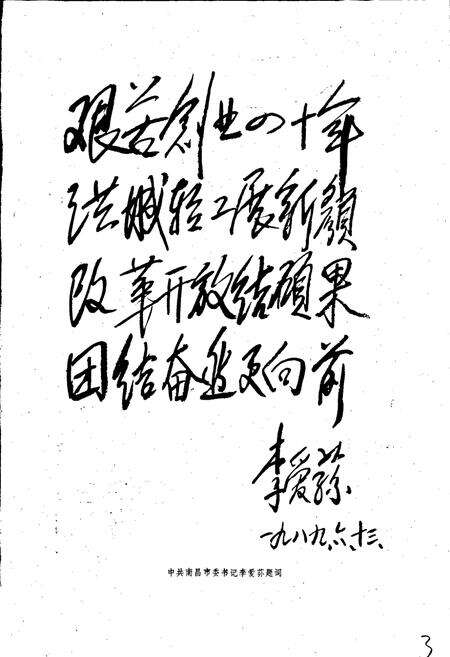 艰苦創业四十年
洪城轻工展新顔
改革开放结碩果
团结奋进更向前
李爱荪
一九八九、六、十三、
中共南昌市委书记李爱荪题词
3